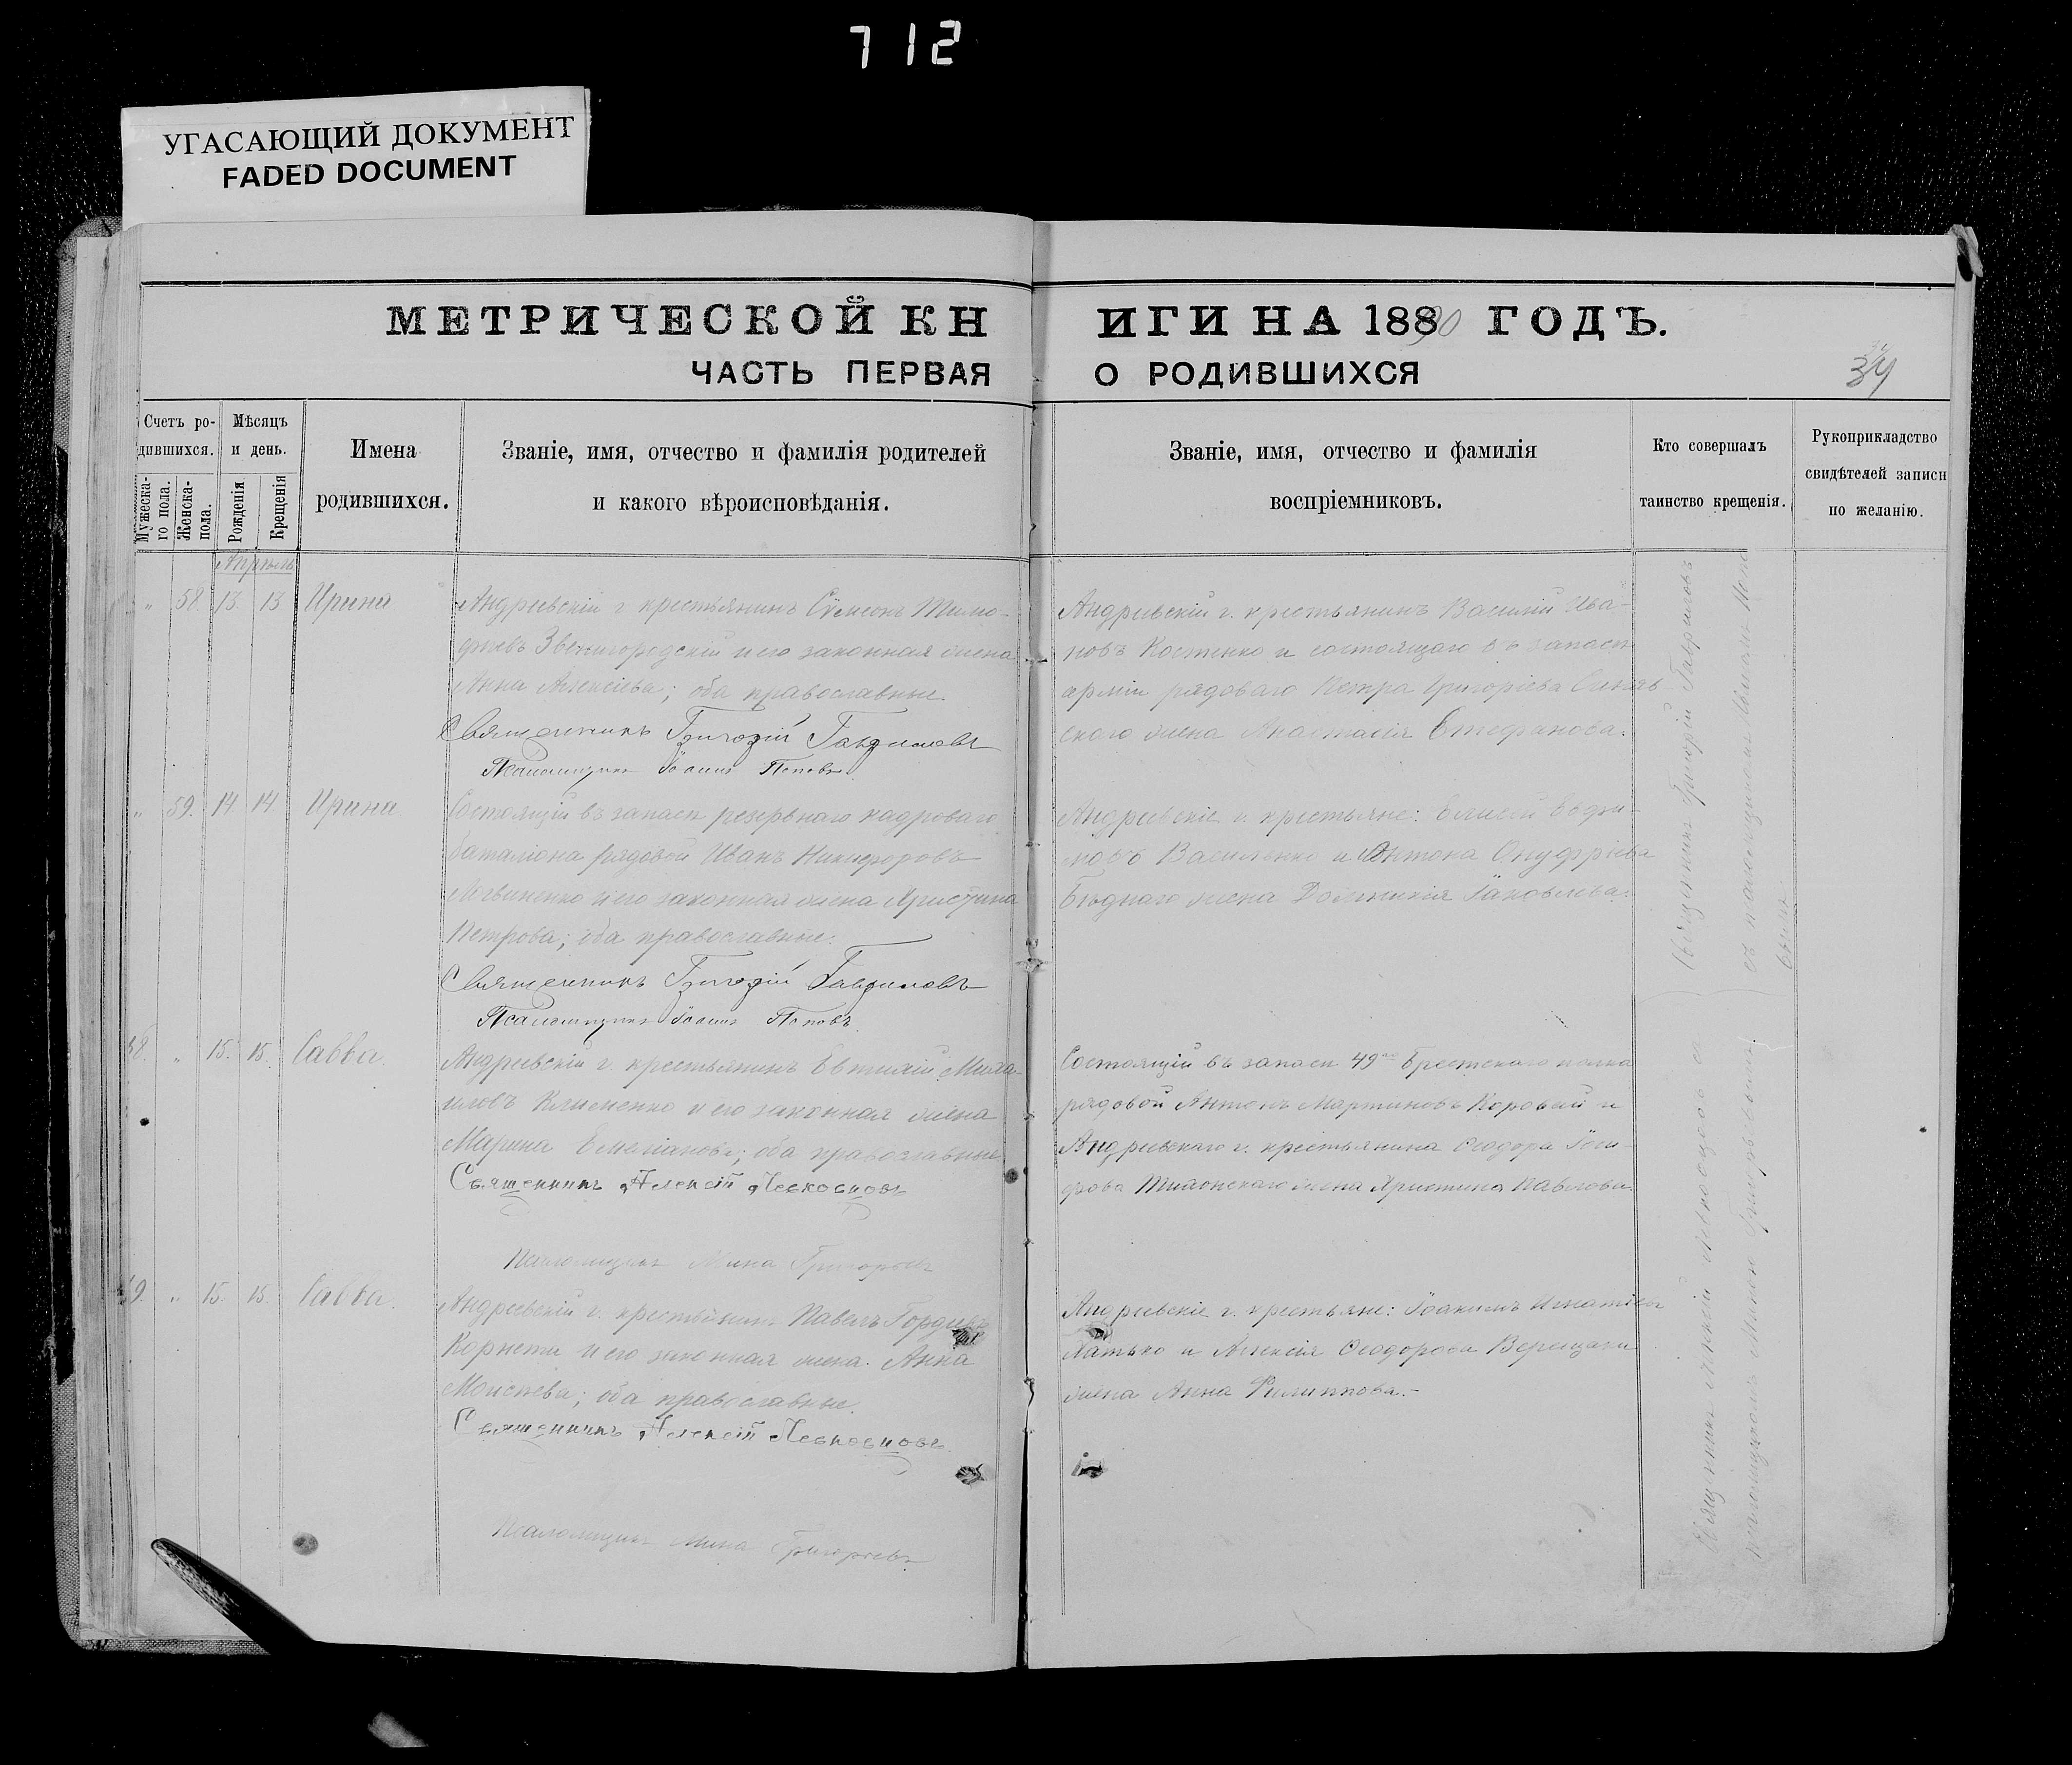 712
УГАСАЮЩИЙ ДОКУМЕНТ
FADED DOCUMENT
МЕТРИЧЕСКОЙ КНИГИ НА 1890 ГОДЪ.
ЧАСТЬ ПЕРВАЯ О РОДИВШИХСЯ
34
Счетъ ро-
дившихся.
Мужеска-
го пола.
Женска-
пола.
Мѣсяцъ
и день.
Рожденія
Крещенія
Имена
родившихся.
Званіе, имя, отчество и фамилія родителей
и какого вѣроисповѣданія.
Званіе, имя, отчество и фамилія
воспріемниковъ.
Кто совершалъ
таинство крещенія.
Рукоприкладство
свидѣтелей записи
по желанію.
Апрѣль
" 58. 13. 13 Ирина
Андреевскій г. крестьянинъ Сѵмеонъ Тимо-
феевъ Звенигородскій и его законная жена
Анна Алексіева; оба православные.
Священникъ Григорій Гавриловъ
Псаломщикъ Іоаннъ Поповъ
Андреевскій г. крестьянинъ Василій Ива-
новъ Костенко и состоящаго въ запасѣ
арміи рядоваго Петра Григоріева
скаго жена Анастасія Стефанова.
" 59. 14 14 Ирина.
Состоящій въ запасѣ резервнаго кадроваго
баталіона рядовой Иванъ Никифоровъ
Литвиненко и его законная жена Христина
Петрова; оба православные.
Священникъ Григорій Гавриловъ
Псаломщикъ Іоаннъ Поповъ.
Андреевскіе г. крестьяне: Елисей Евфи-
мовъ Василенко и Антона Онуфріева
Бѣднаго жена Домникія Іаковлева.
58. " 15. 15. Савва.
Андреевскій г. крестьянинъ Евтихій Миха-
иловъ Клименко и его законная жена
Марина Емеліанова; оба православные
Священникъ Алексій Левкоевновъ
Псаломщикъ Мина Григорьевъ
Состоящій въ запасѣ 49го Брестскаго полка
рядовой Антонъ Мартиновъ Коровай и
Андреевскаго г. крестьянина Ѳеодора Іоси-
фова Тихонскаго жена Христина Павлова.
59. " 15. 15. Савва.
Андреевскій г. крестьянинъ Павелъ Гордіевъ
и его законная жена Анна
Моисеева; оба православные.
Священникъ Алексій
Псаломщикъ Мина Григорьевъ
Андреевскіе г. крестьяне: Іоакимъ Игнатіевъ
и Алексія Ѳеодорова Верещаки
жена Анна Филиппова.-
Священникъ Григорій Гавриловъ
съ псаломщикомъ
Священникъ Алексій
псаломщикомъ Миною Григорьевымъ